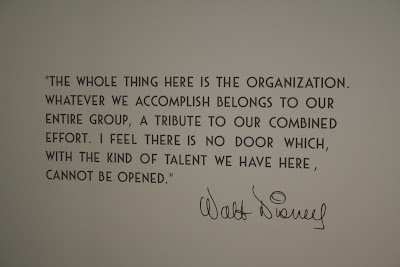 "THE WHOLE THING HERE IS THE ORGANIZATION.
WHATEVER WE ACCOMPLISH BELONGS TO OUR
ENTIRE GROUP, A TRIBUTE TO OUR COMBINED
EFFORT. I FEEL THERE IS NO DOOR WHICH,
WITH THE KIND OF TALENT WE HAVE HERE,
CANNOT BE OPENED."
Walt Disney